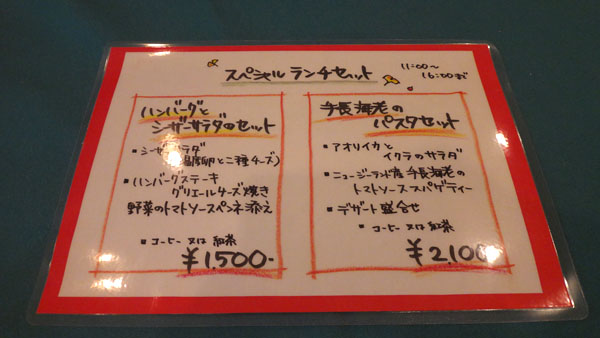 スペシャル ランチセット
11:00〜
16:00まで
ハンバーグと
シーザーサラダのセット
・シーザーサラダ
温度卵と二種チーズ)
・ハンバーグステーキ
グリエールチーズ焼き
野菜のトマトソースペンネ添え
・コーヒー 又は 紅茶
¥1,500-
手長海老の
パスタセット
・アオリイカと
イクラのサラダ
・ニュージーランド産 手長海老の
トマトソーススパゲティー
・デザート盛合せ
・コーヒー 又は 紅茶
¥2,100